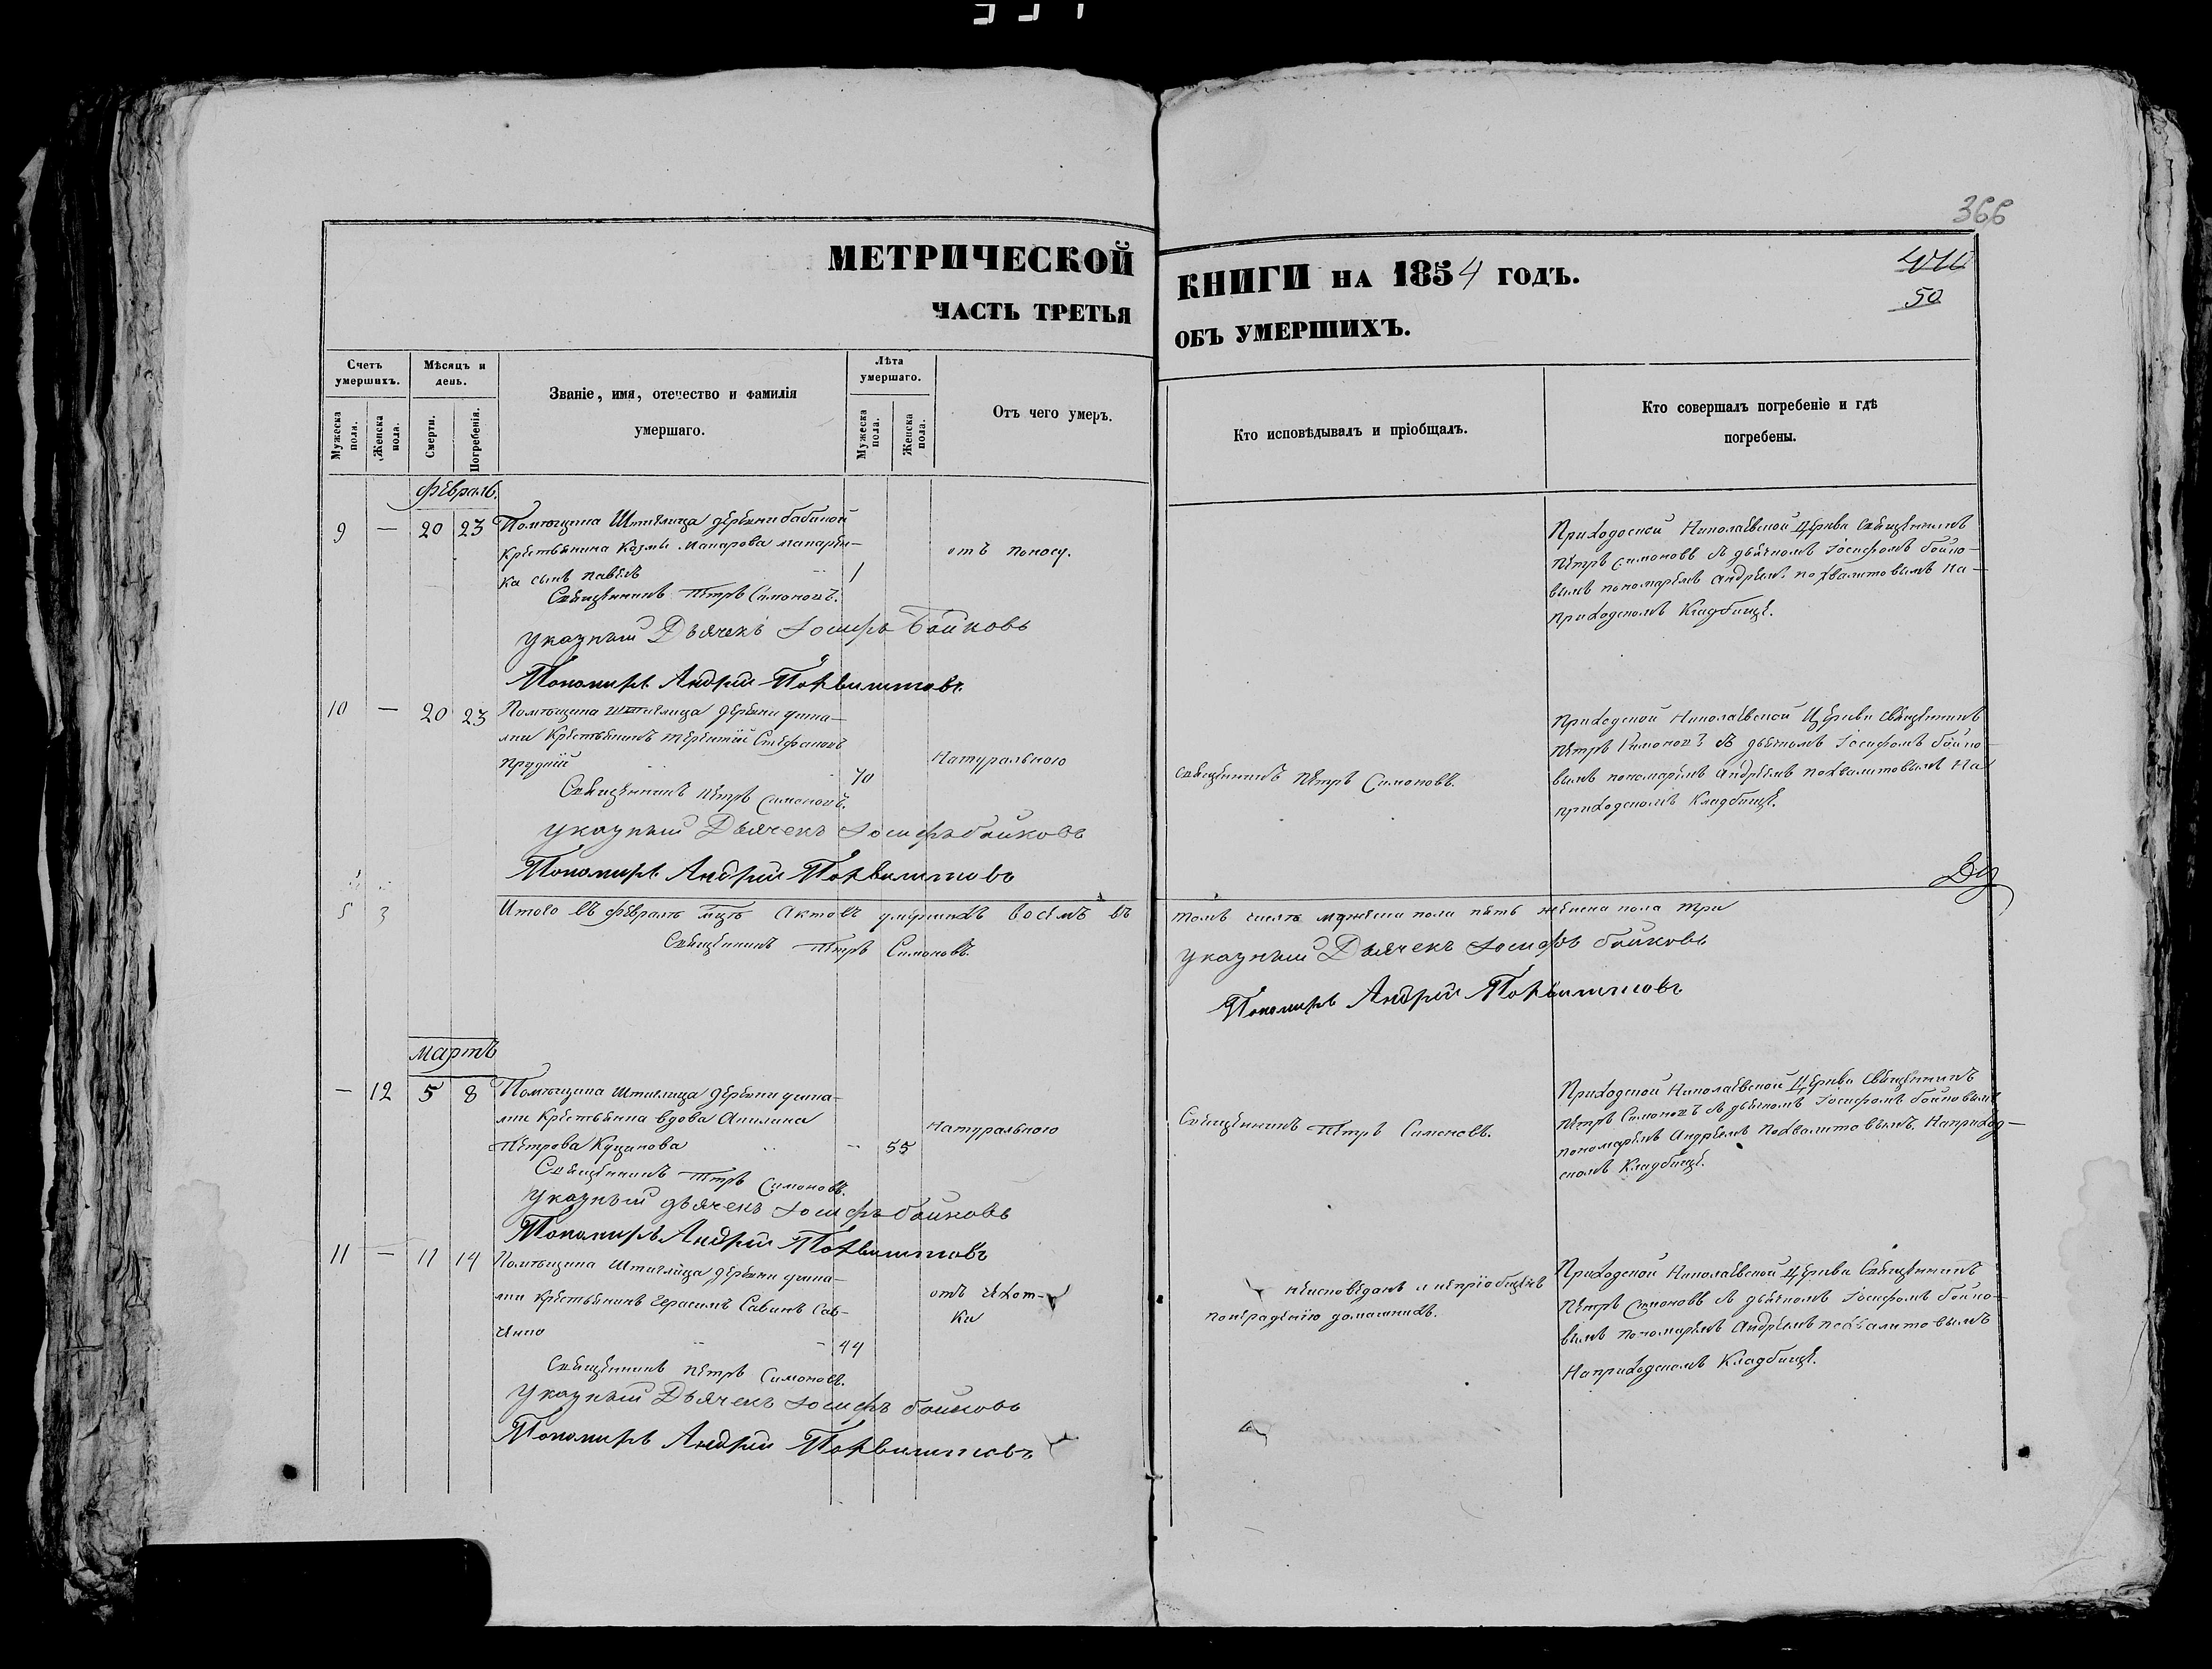 366
МЕТРИЧЕСКОЙ КНИГИ НА 1854 ГОДЪ.
50
ЧАСТЬ ТРЕТЬЯ ОБЪ УМЕРШИХЪ.
Счетъ умершихъ.
Мужеска пола.
Женска пола.
Мѣсяцъ и день.
Смерти.
Погребенія.
Званіе, имя, отечество и фамилія
умершаго.
Лѣта умершаго.
Мужеска пола.
Женска пола.
Отъ чего умеръ.
Кто исповѣдывалъ и пріобщалъ.
Кто совершалъ погребеніе и гдѣ
погребены.
Февраль.
9 — 20 23
Помѣщика Штиглица деревни бабиной
крестьянина Козмы Макарова макарен-
ка сынъ павелъ 1
отъ поносу.
Приходской Николаевской Церкви священникъ
Петръ Симоновъ съ дьячкомъ Іосифомъ бойко-
вымъ пономаремъ андреемъ похвалитовымъ на
приходскомъ Кладбищѣ.
Священникъ Петръ Симоновъ.
указный Дьячекъ Іосифъ Бойковъ
Пономарь Андрей Похвалитовъ
10 — 20 23
Помѣщика штиглица деревни
крестьянинъ терентій Стефановъ
прудкій 70
Натуральною
священникъ Петръ Симоновъ.
приходской Николаевской Церкви священникъ
Петръ Симоновъ съ дьячкомъ Іосифомъ бойко-
вымъ пономаремъ андреемъ похвалитовымъ на
приходскомъ Кладбищѣ.
Священникъ Петръ Симоновъ.
указный Дьячекъ Іосифъ бойковъ
Пономарь Андрей Похвалитовъ
5 3
Итого въ февралѣ мцѣ актовъ умершихъ восемь въ
томъ числѣ мужеска пола пять женска пола три
Священникъ Петръ Симоновъ.
указный Дьячекъ Іосифъ бойковъ
Пономарь Андрей Похвалитовъ
мартъ
— 12 5 8
Помѣщика Штиглица деревни
крестьянка вдова Акилина
Петрова Куцакова 55
Натуральною
Священникъ Петръ Симоновъ.
Приходской Николаевской Церкви священникъ
Петръ Симоновъ съ дьячкомъ Іосифомъ бойковымъ
пономаремъ андреемъ похвалитовымъ. На приход-
скомъ Кладбищѣ.
Священникъ Петръ Симоновъ.
указный дьячекъ Іосифъ бойковъ
Пономарь Андрей Похвалитовъ
11 — 11 14
Помѣщика Штиглица деревни
крестьянинъ Герасимъ Савинъ Сав-
ченко 44
отъ чехот-
ки
неисповѣданъ и непріобщенъ
по нерадѣнію домашнихъ.
Приходской Николаевской Церкви Священникъ
Петръ Симоновъ съ дьячкомъ Іосифомъ бойко-
вымъ пономаремъ андреемъ похвалитовымъ
На приходскомъ Кладбищѣ.
Священникъ Петръ Симоновъ.
указный Дьячекъ Іосифъ бойковъ
Пономарь Андрей Похвалитовъ